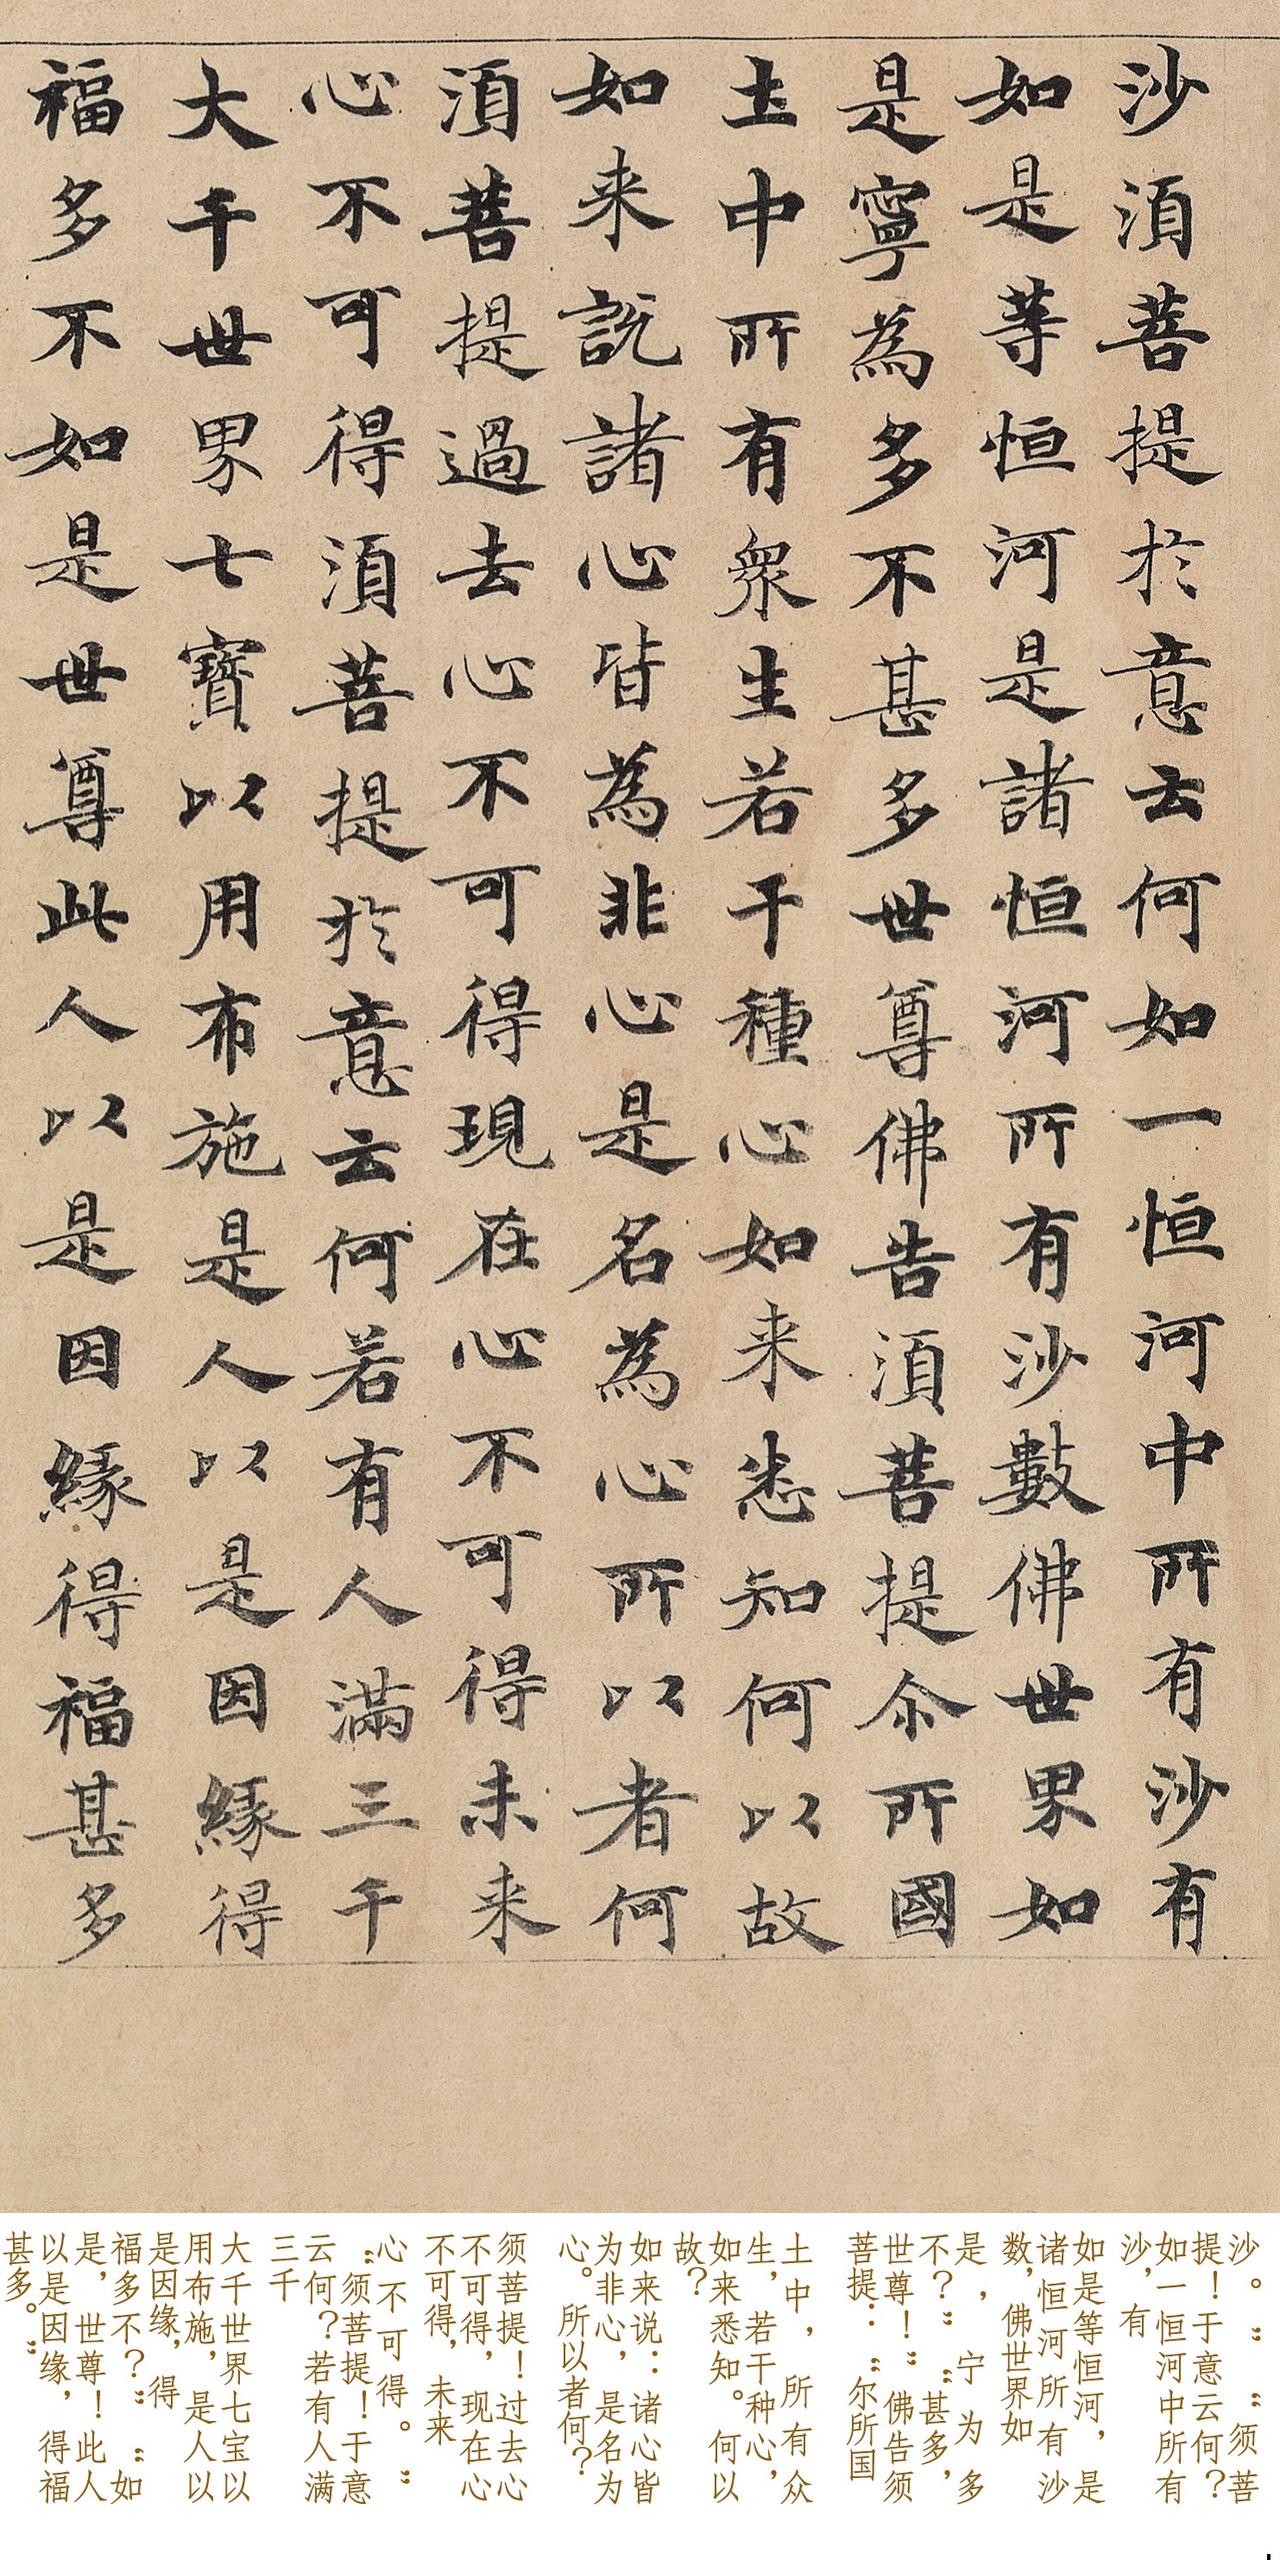 沙須菩提於意云何如一恒河中所有沙有
如是等恒河是諸恒河所有沙數佛世界如
是寧為多不甚多世尊佛告須菩提尒所國
土中所有衆生若干種心如来悉知何以故
如来說諸心皆為非心是名為心所以者何
須菩提過去心不可得現在心不可得未来
心不可得須菩提於意云何若有人滿三千
大千世界七寶以用布施是人以是因緣得
福多不如是世尊此人以是因緣得福甚多
沙。”“须菩
提！于意云何？
如一恒河中所有
沙，有
如是等恒河，是
诸恒河所有沙
数，佛世界如
是，宁为多
不？”“甚多，
世尊！”佛告须
菩提：“尔所国
土中，所有众
生，若干种心，
如来悉知。何以
故？
如来说：诸心皆
为非心，是名为
心。所以者何？
须菩提！过去心
不可得，现在心
不可得，未来
心不可得。”
“须菩提！于意
云何？若有人满
三千
大千世界七宝以
用布施，是人以
是因缘，得
福多不？”“如
是，世尊！此人
以是因缘，得福
甚多。”